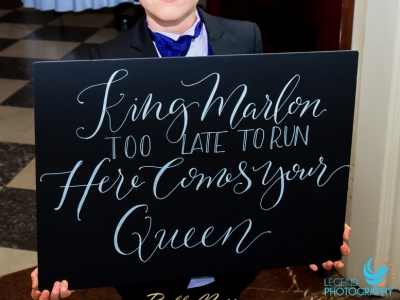 King Marlon
TOO LATE TO RUN
Here Comes Your
Queen
LEGEND
PHOTOGRAPHY